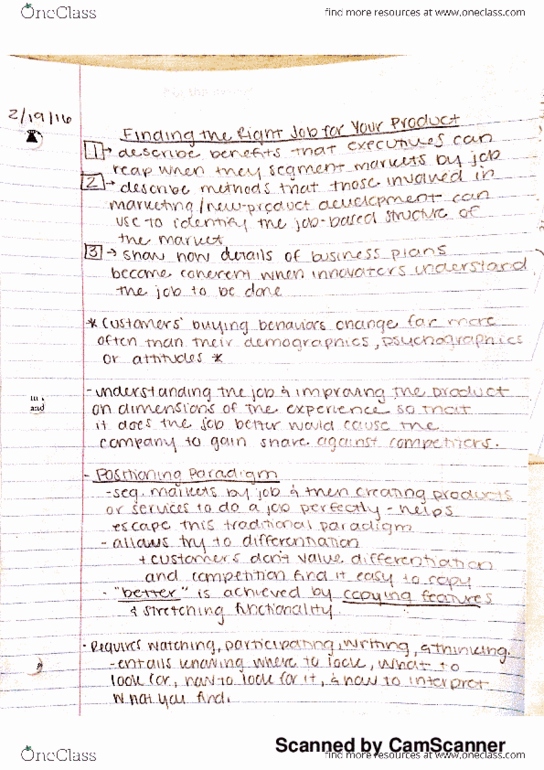 OneClass
find more resources at www.oneclass.com
2/19/16
Finding the Right Job for Your Product
1 → describe benefits that executives can
reap when they segment markets by job
2 → describe methods that those involved in
marketing/new-product development can
use to identify the job-based structure of
the market
3 → show how details of business plans
become coherent when innovators understand
the job to be done
* customers' buying behaviors change far more
often than their demographics, psychographics
or attitudes *
- understanding the job & improving the product
on dimensions of the experience so that
it does the job better would cause the
company to gain share against competitors.
and
- Positioning Paradigm
- seg. markets by job & then creating products
or services to do a job perfectly - helps
escape this traditional paradigm
- allows try to differentiation
+ customers don't value differentiation
and competition find it easy to copy
- "better" is achieved by copying features
& stretching functionality
· Requires watching, participating, writing, & thinking.
- entails knowing where to look, what to
look for, how to look for it, & how to interpret
what you find.
Scanned by CamScanner
OneClass
find more resources at www.oneclass.com